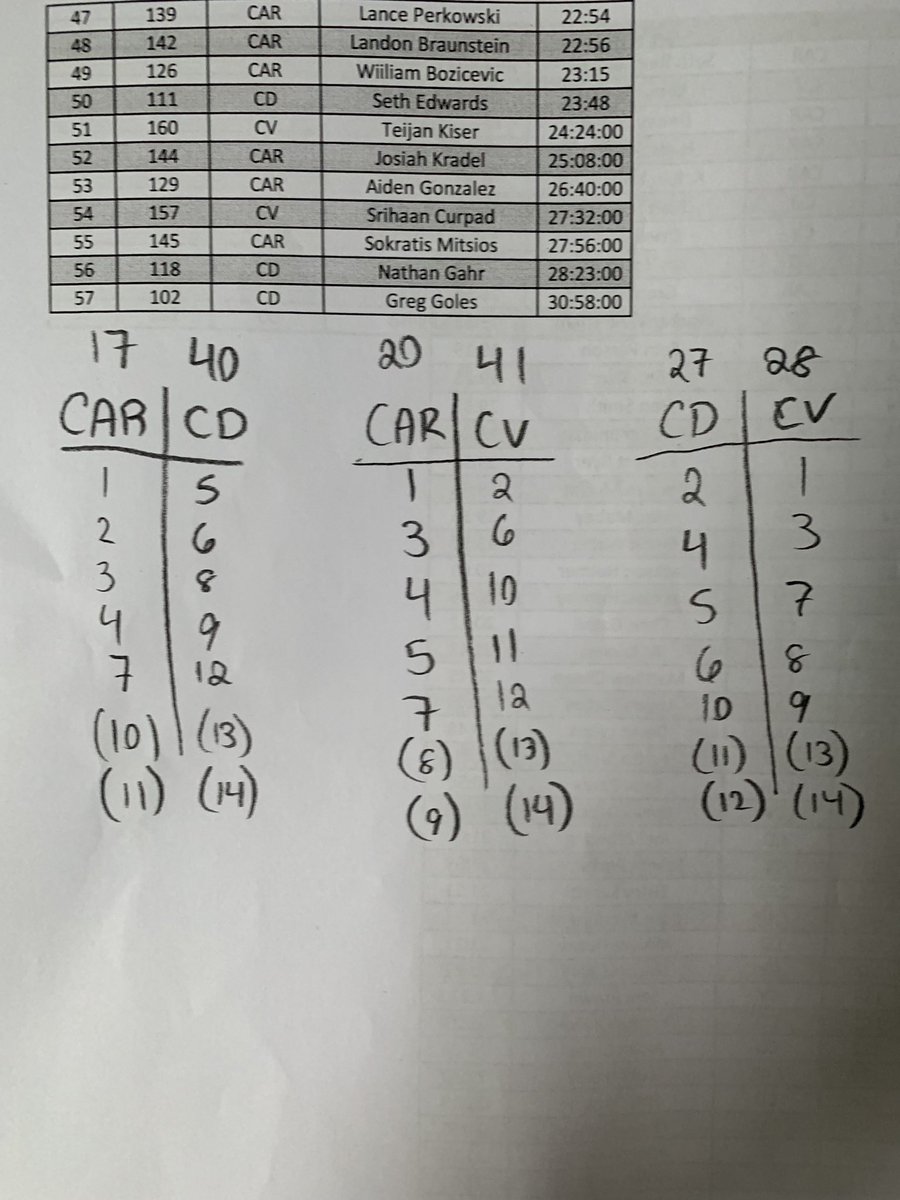 47 139 CAR Lance Perkowski 22:54
48 142 CAR Landon Braunstein 22:56
49 126 CAR Wiiliam Bozicevic 23:15
50 111 CD Seth Edwards 23:48
51 160 CV Teijan Kiser 24:24:00
52 144 CAR Josiah Kradel 25:08:00
53 129 CAR Aiden Gonzalez 26:40:00
54 157 CV Srihaan Curpad 27:32:00
55 145 CAR Sokratis Mitsios 27:56:00
56 118 CD Nathan Gahr 28:23:00
57 102 CD Greg Goles 30:58:00
17 40 20 41 27 28
CAR CD CAR CV CD CV
1 5 1 2 2 1
2 6 3 6 4 3
3 8 4 10 5 7
4 9 5 11 6 8
7 12 7 12 10 9
(10) (13) (8) (13) (11) (13)
(11) (14) (9) (14) (12) (14)